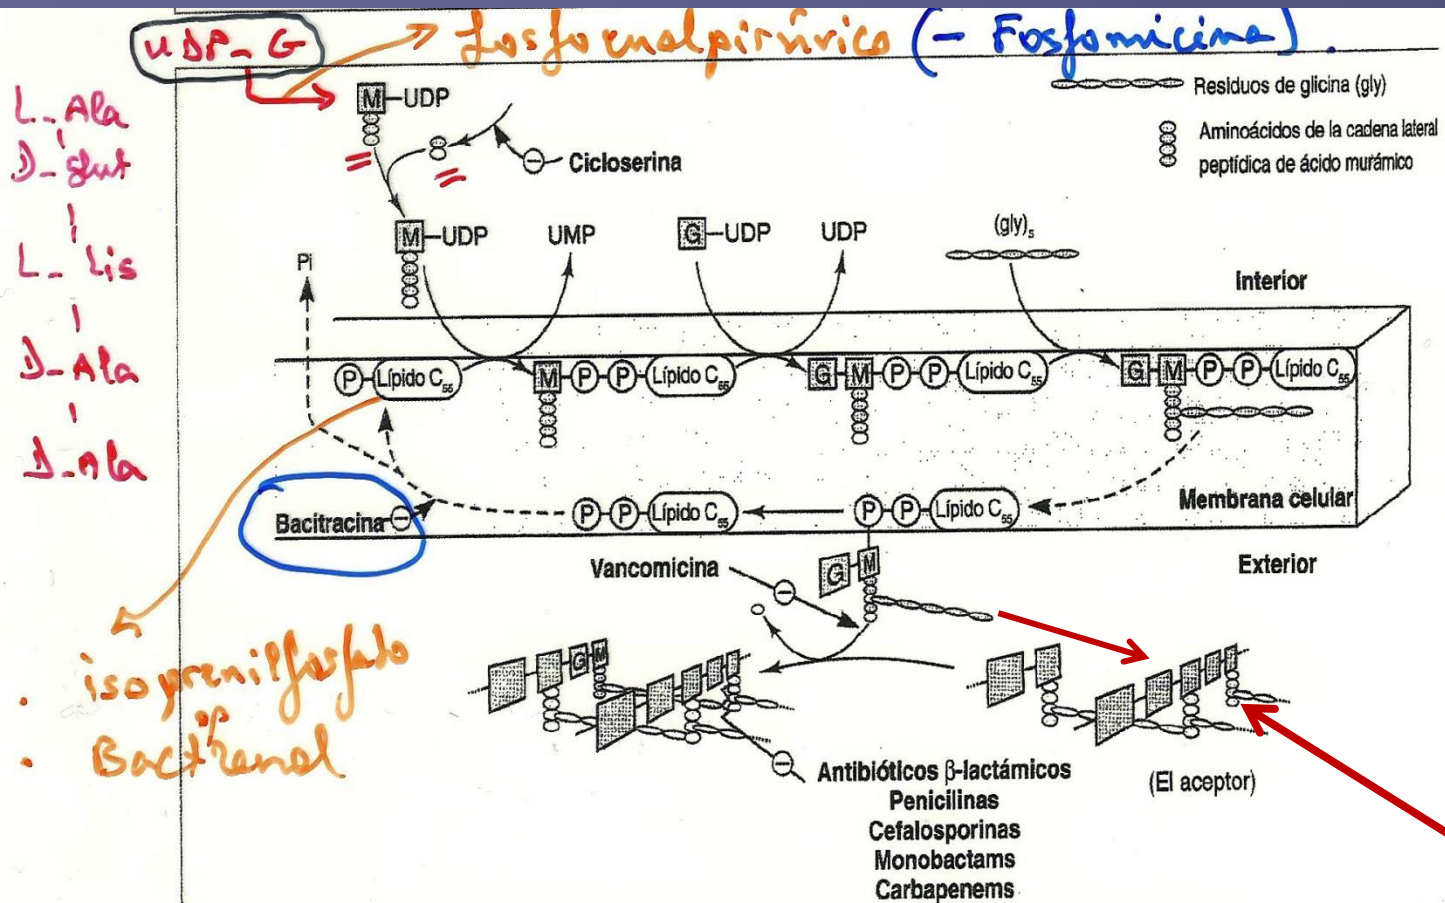 UDP-G
fosfoenolpirúvico (- Fosfomicina).
L-Ala
D-glut
L-Lis
D-Ala
D-Ala
M-UDP
Residuos de glicina (gly)
Aminoácidos de la cadena lateral
peptídica de ácido murámico
- Cicloserina
M-UDP
UMP
G-UDP
UDP
(gly)5
Pi
Interior
P-Lípido C55
M-P-P-Lípido C55
G-M-P-P-Lípido C55
G-M-P-P-Lípido C55
Membrana celular
Bacitracina -
P-P-Lípido C55
P-P-Lípido C55
Exterior
Vancomicina
-
G M
isoprenilfosfato
op
Bactrenol
G M
-
Antibióticos β-lactámicos
Penicilinas
Cefalosporinas
Monobactams
Carbapenems
(El aceptor)